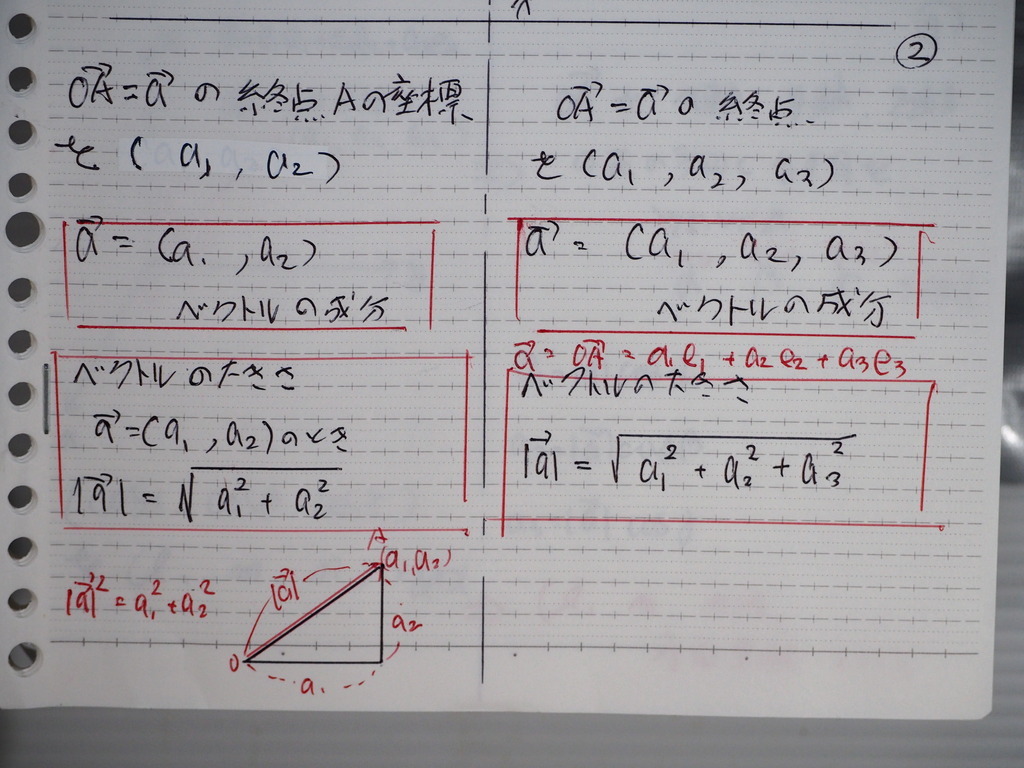 ②
OA→ = a→ の 終点 Aの座標
を (a₁, a₂)
a→ = (a₁, a₂)
ベクトルの成分
ベクトルの大きさ
a→ = (a₁, a₂)のとき
|a→| = √(a₁² + a₂²)
|a→|² = a₁² + a₂²
A
(a₁, a₂)
|a→|
a₂
O
a₁
OA→ = a→ の 終点
を (a₁, a₂, a₃)
a→ = (a₁, a₂, a₃)
ベクトルの成分
a→ = OA→ = a₁e₁ + a₂e₂ + a₃e₃
ベクトルの大きさ
|a→| = √(a₁² + a₂² + a₃²)